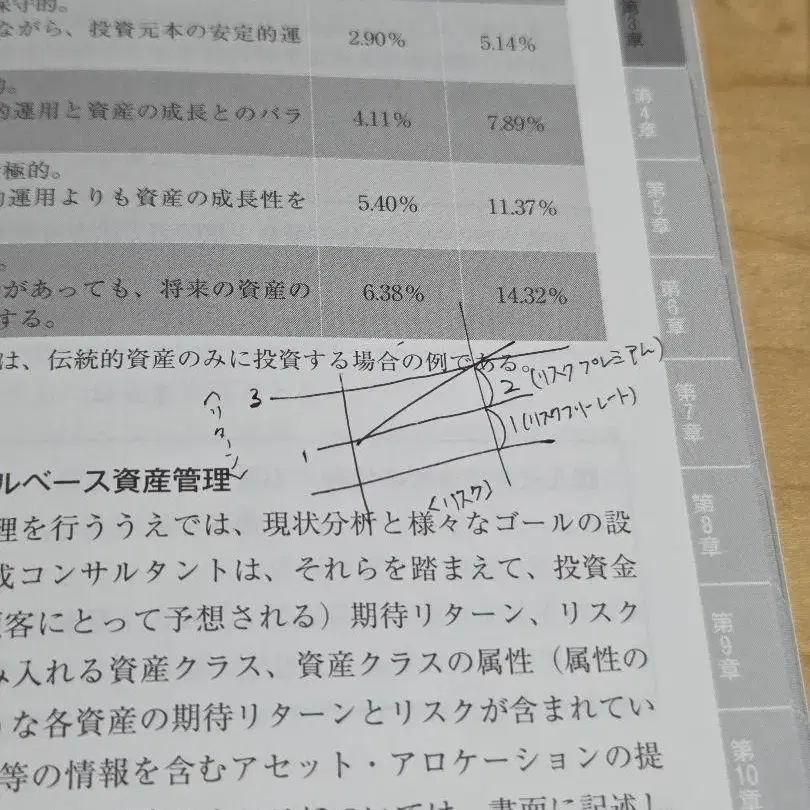 保守的。
ながら、投資元本の安定的運 2.90% 5.14%
的運用と資産の成長とのバラ 4.11% 7.89%
極的。
的運用よりも資産の成長性を 5.40% 11.37%
があっても、将来の資産の 6.38% 14.32%
する。
は、伝統的資産のみに投資する場合の例である。
3
2 (リスクプレミアム)
1 (リスクフリーレート)
1
〈リターン〉
〈リスク〉
ルベース資産管理
理を行ううえでは、現状分析と様々なゴールの設
成コンサルタントは、それらを踏まえて、投資金
顧客にとって予想される）期待リターン、リスク
み入れる資産クラス、資産クラスの属性（属性の
うな各資産の期待リターンとリスクが含まれてい
等の情報を含むアセット・アロケーションの提
第3章
第4章
第5章
第6章
第7章
第8章
第9章
第10章